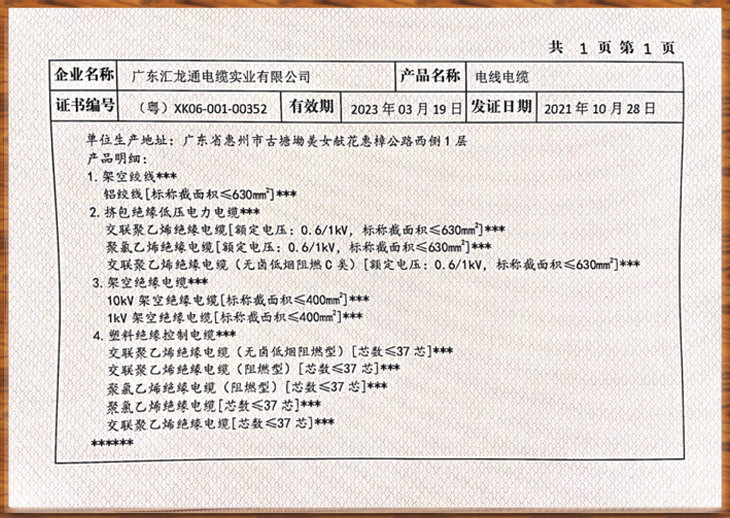 共 1 页 第 1 页
企业名称 广东汇龙通电缆实业有限公司 产品名称 电线电缆
证书编号 （粤）XK06-001-00352 有效期 2023 年 03 月 19 日 发证日期 2021 年 10 月 28 日
单位生产地址：广东省惠州市古塘坳美女献花惠樟公路西侧1层
产品明细：
1.架空绞线***
铝绞线[标称截面积≤630mm²]***
2.挤包绝缘低压电力电缆***
交联聚乙烯绝缘电缆[额定电压：0.6/1kV，标称截面积≤630mm²]***
聚氯乙烯绝缘电缆[额定电压：0.6/1kV，标称截面积≤630mm²]***
交联聚乙烯绝缘电缆（无卤低烟阻燃C类）[额定电压：0.6/1kV，标称截面积≤630mm²]***
3.架空绝缘电缆***
10kV架空绝缘电缆[标称截面积≤400mm²]***
1kV架空绝缘电缆[标称截面积≤400mm²]***
4.塑料绝缘控制电缆***
交联聚乙烯绝缘电缆（无卤低烟阻燃型）[芯数≤37芯]***
交联聚乙烯绝缘电缆（阻燃型）[芯数≤37芯]***
聚氯乙烯绝缘电缆（阻燃型）[芯数≤37芯]***
聚氯乙烯绝缘电缆[芯数≤37芯]***
交联聚乙烯绝缘电缆[芯数≤37芯]***
******